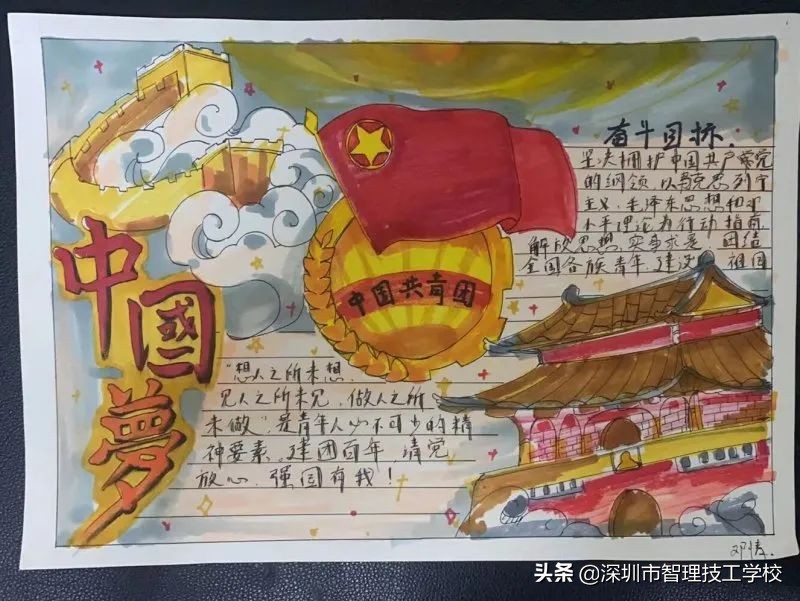 中國夢
奋斗目标.
坚决拥护中国共产党党
的纲领,以马克思列宁
主义、毛泽东思想和邓
小平理论为行动指南,
解放思想,实事求是,团结
全国各族青年,建设 祖国
中国共青团
“想人之所未想,
见人之所未见,做人之所
未做”是青年人必不可少的精
神要素,建团百年,请党
放心,强国有我!
邓倩.
头条@深圳市智理技工学校